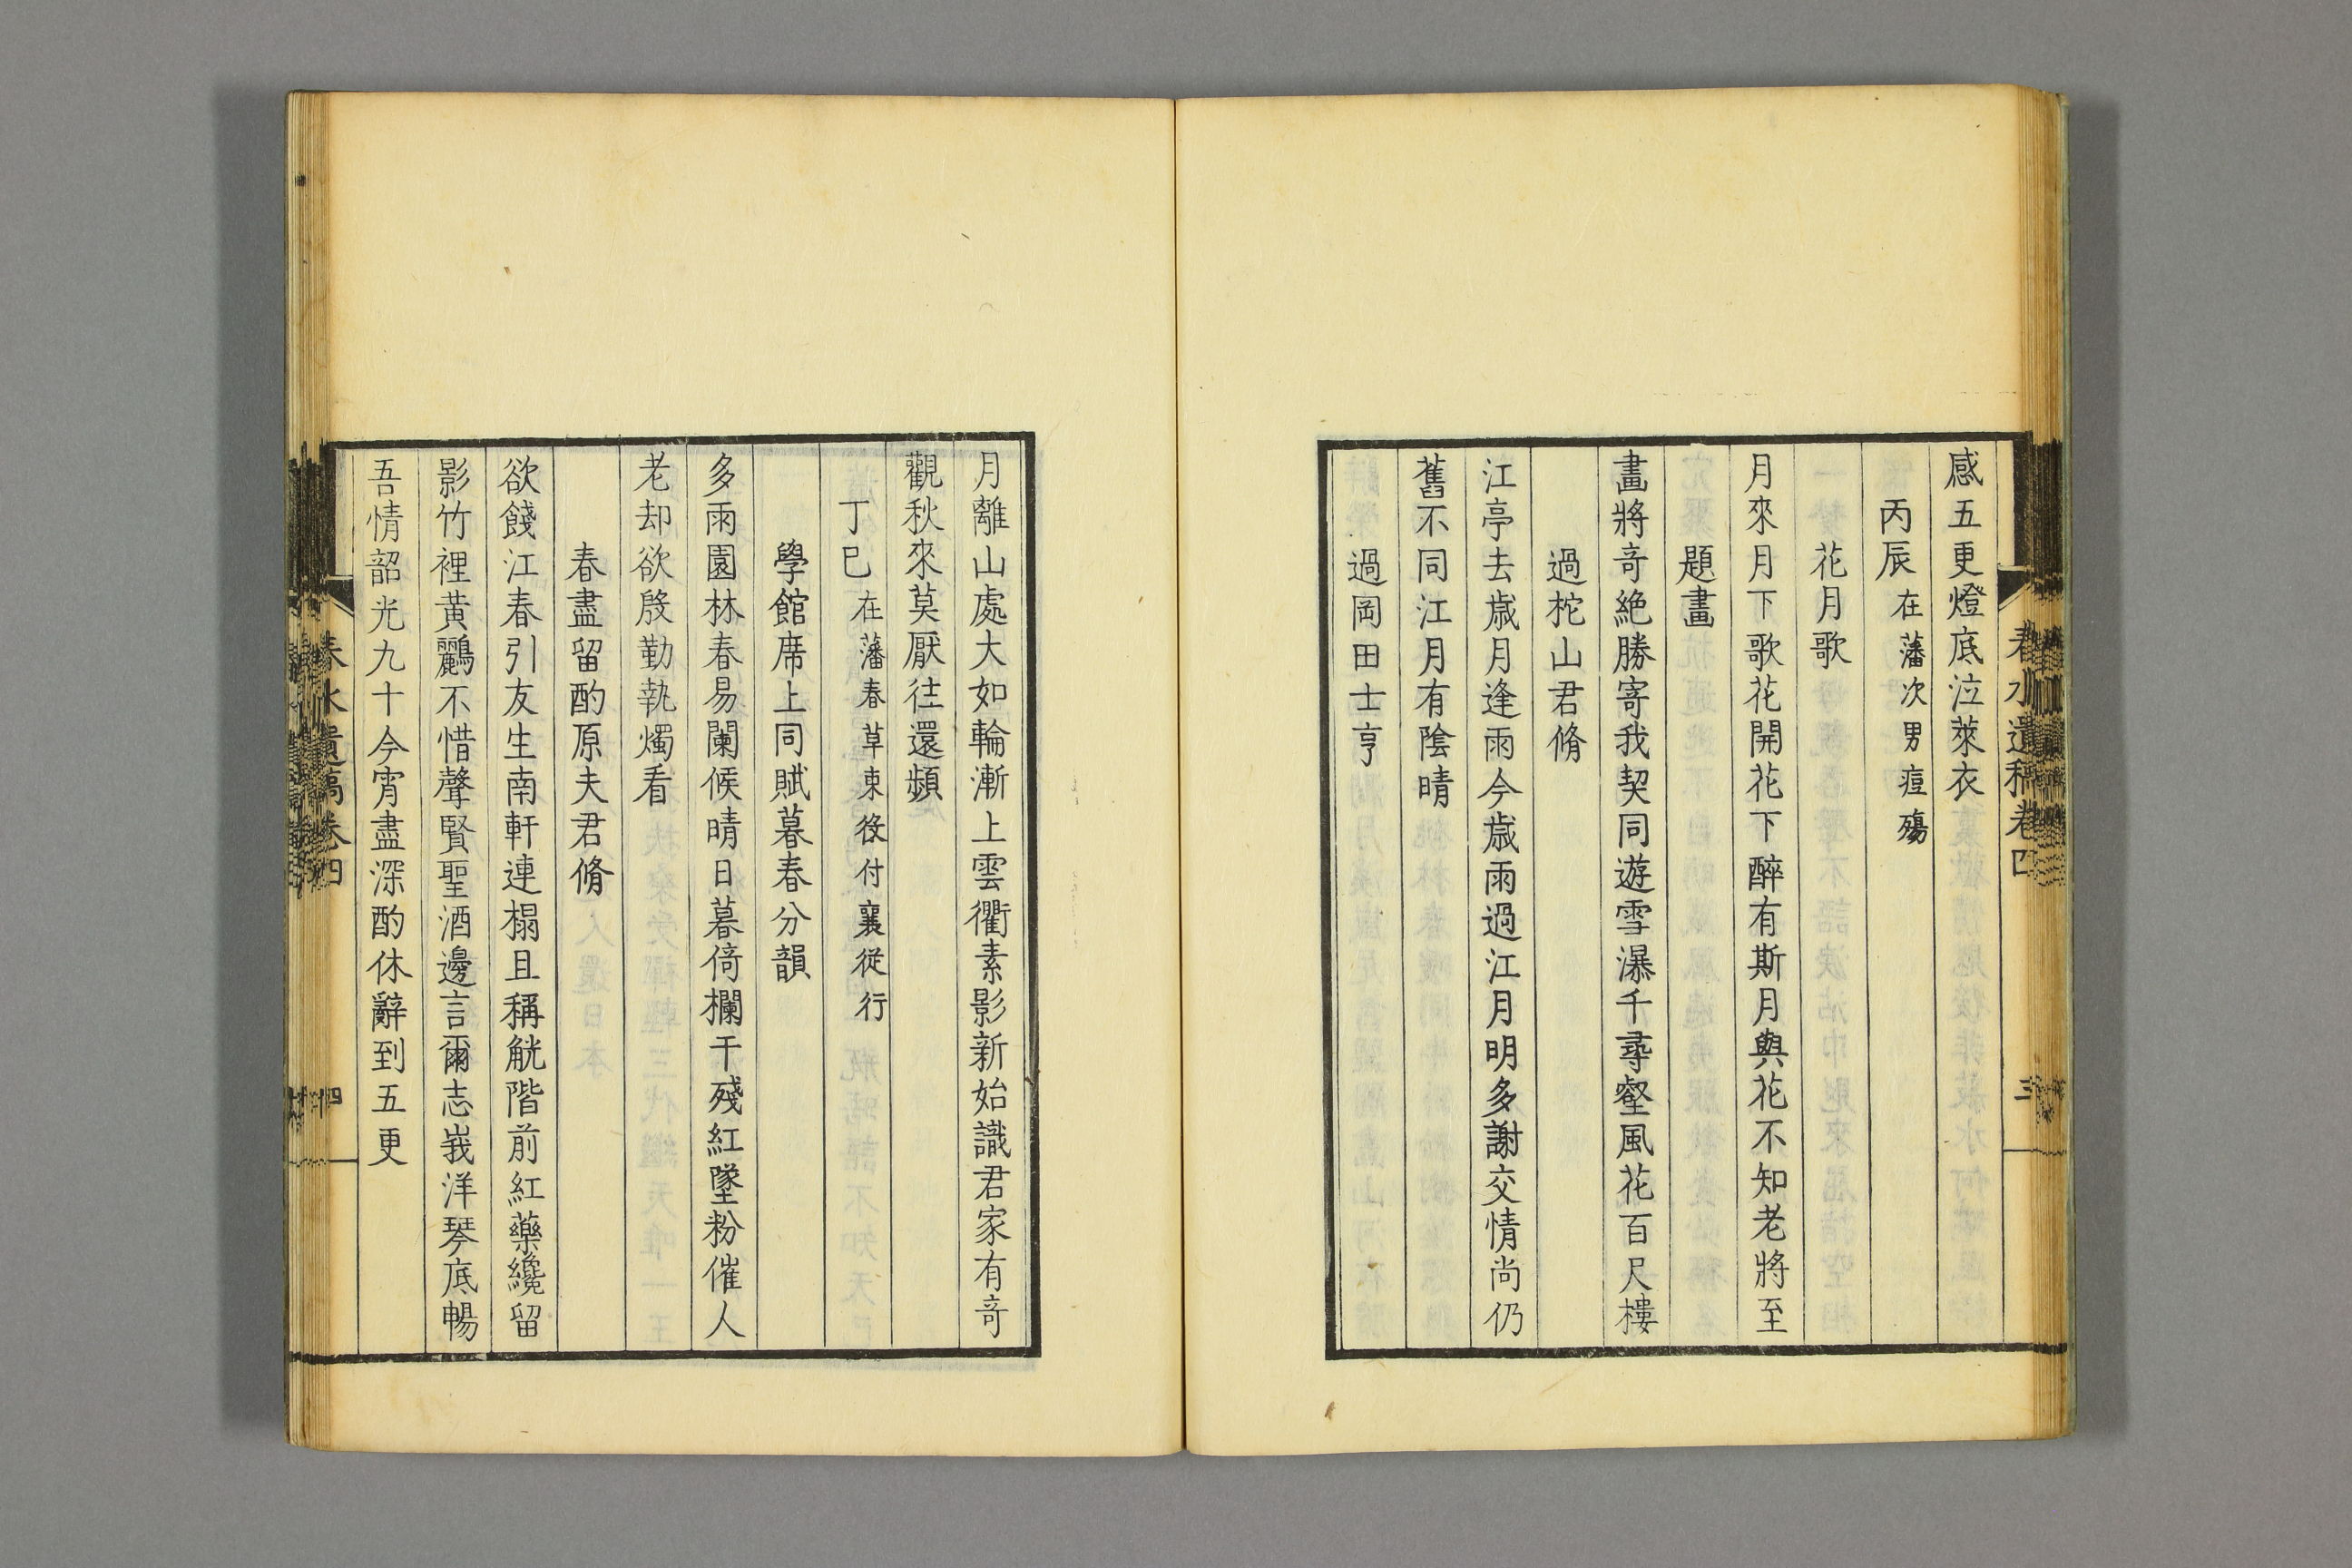 感五更燈底泣萊衣
丙辰 在藩次男痘殤
花月歌
月來月下歌花開花下醉有斯月與花不知老將至
題畫
畫將奇絶勝寄我契同遊雪瀑千尋壑風花百尺樓
過柁山君脩
江亭去歳月逢雨今歳雨過江月明多謝交情尚仍
舊不同江月有陰晴
過岡田士亨
春水遺稿卷四
三
月離山處大如輪漸上雲衢素影新始識君家有奇
觀秋來莫厭往還頻
丁巳 在藩春草東役付襄従行
學館席上同賦暮春分韻
多雨園林春易闌候晴日暮倚欄干殘紅墜粉催人
老却欲殷勤執燭看
春盡留酌原夫君脩
欲餞江春引友生南軒連榻且稱觥階前紅藥纔留
影竹裡黄鸝不惜聲賢聖酒邊言爾志峩洋琴底暢
吾情韶光九十今宵盡深酌休辭到五更
春水遺稿卷四
四